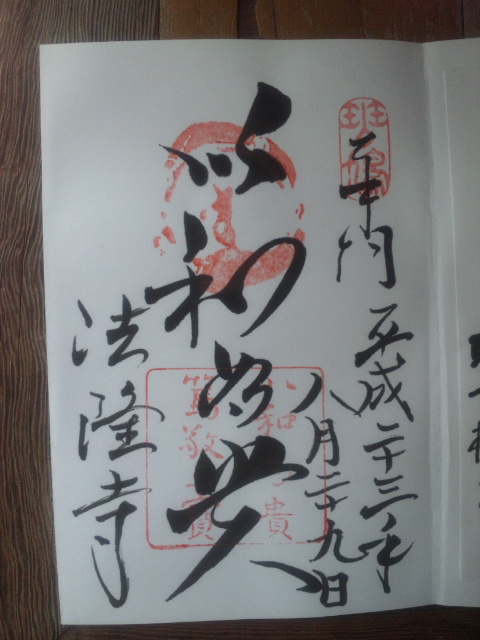 斑鳩
平成二十三年
八月二十九日
以和為貴
法隆寺
以和為貴
篤敬三寶